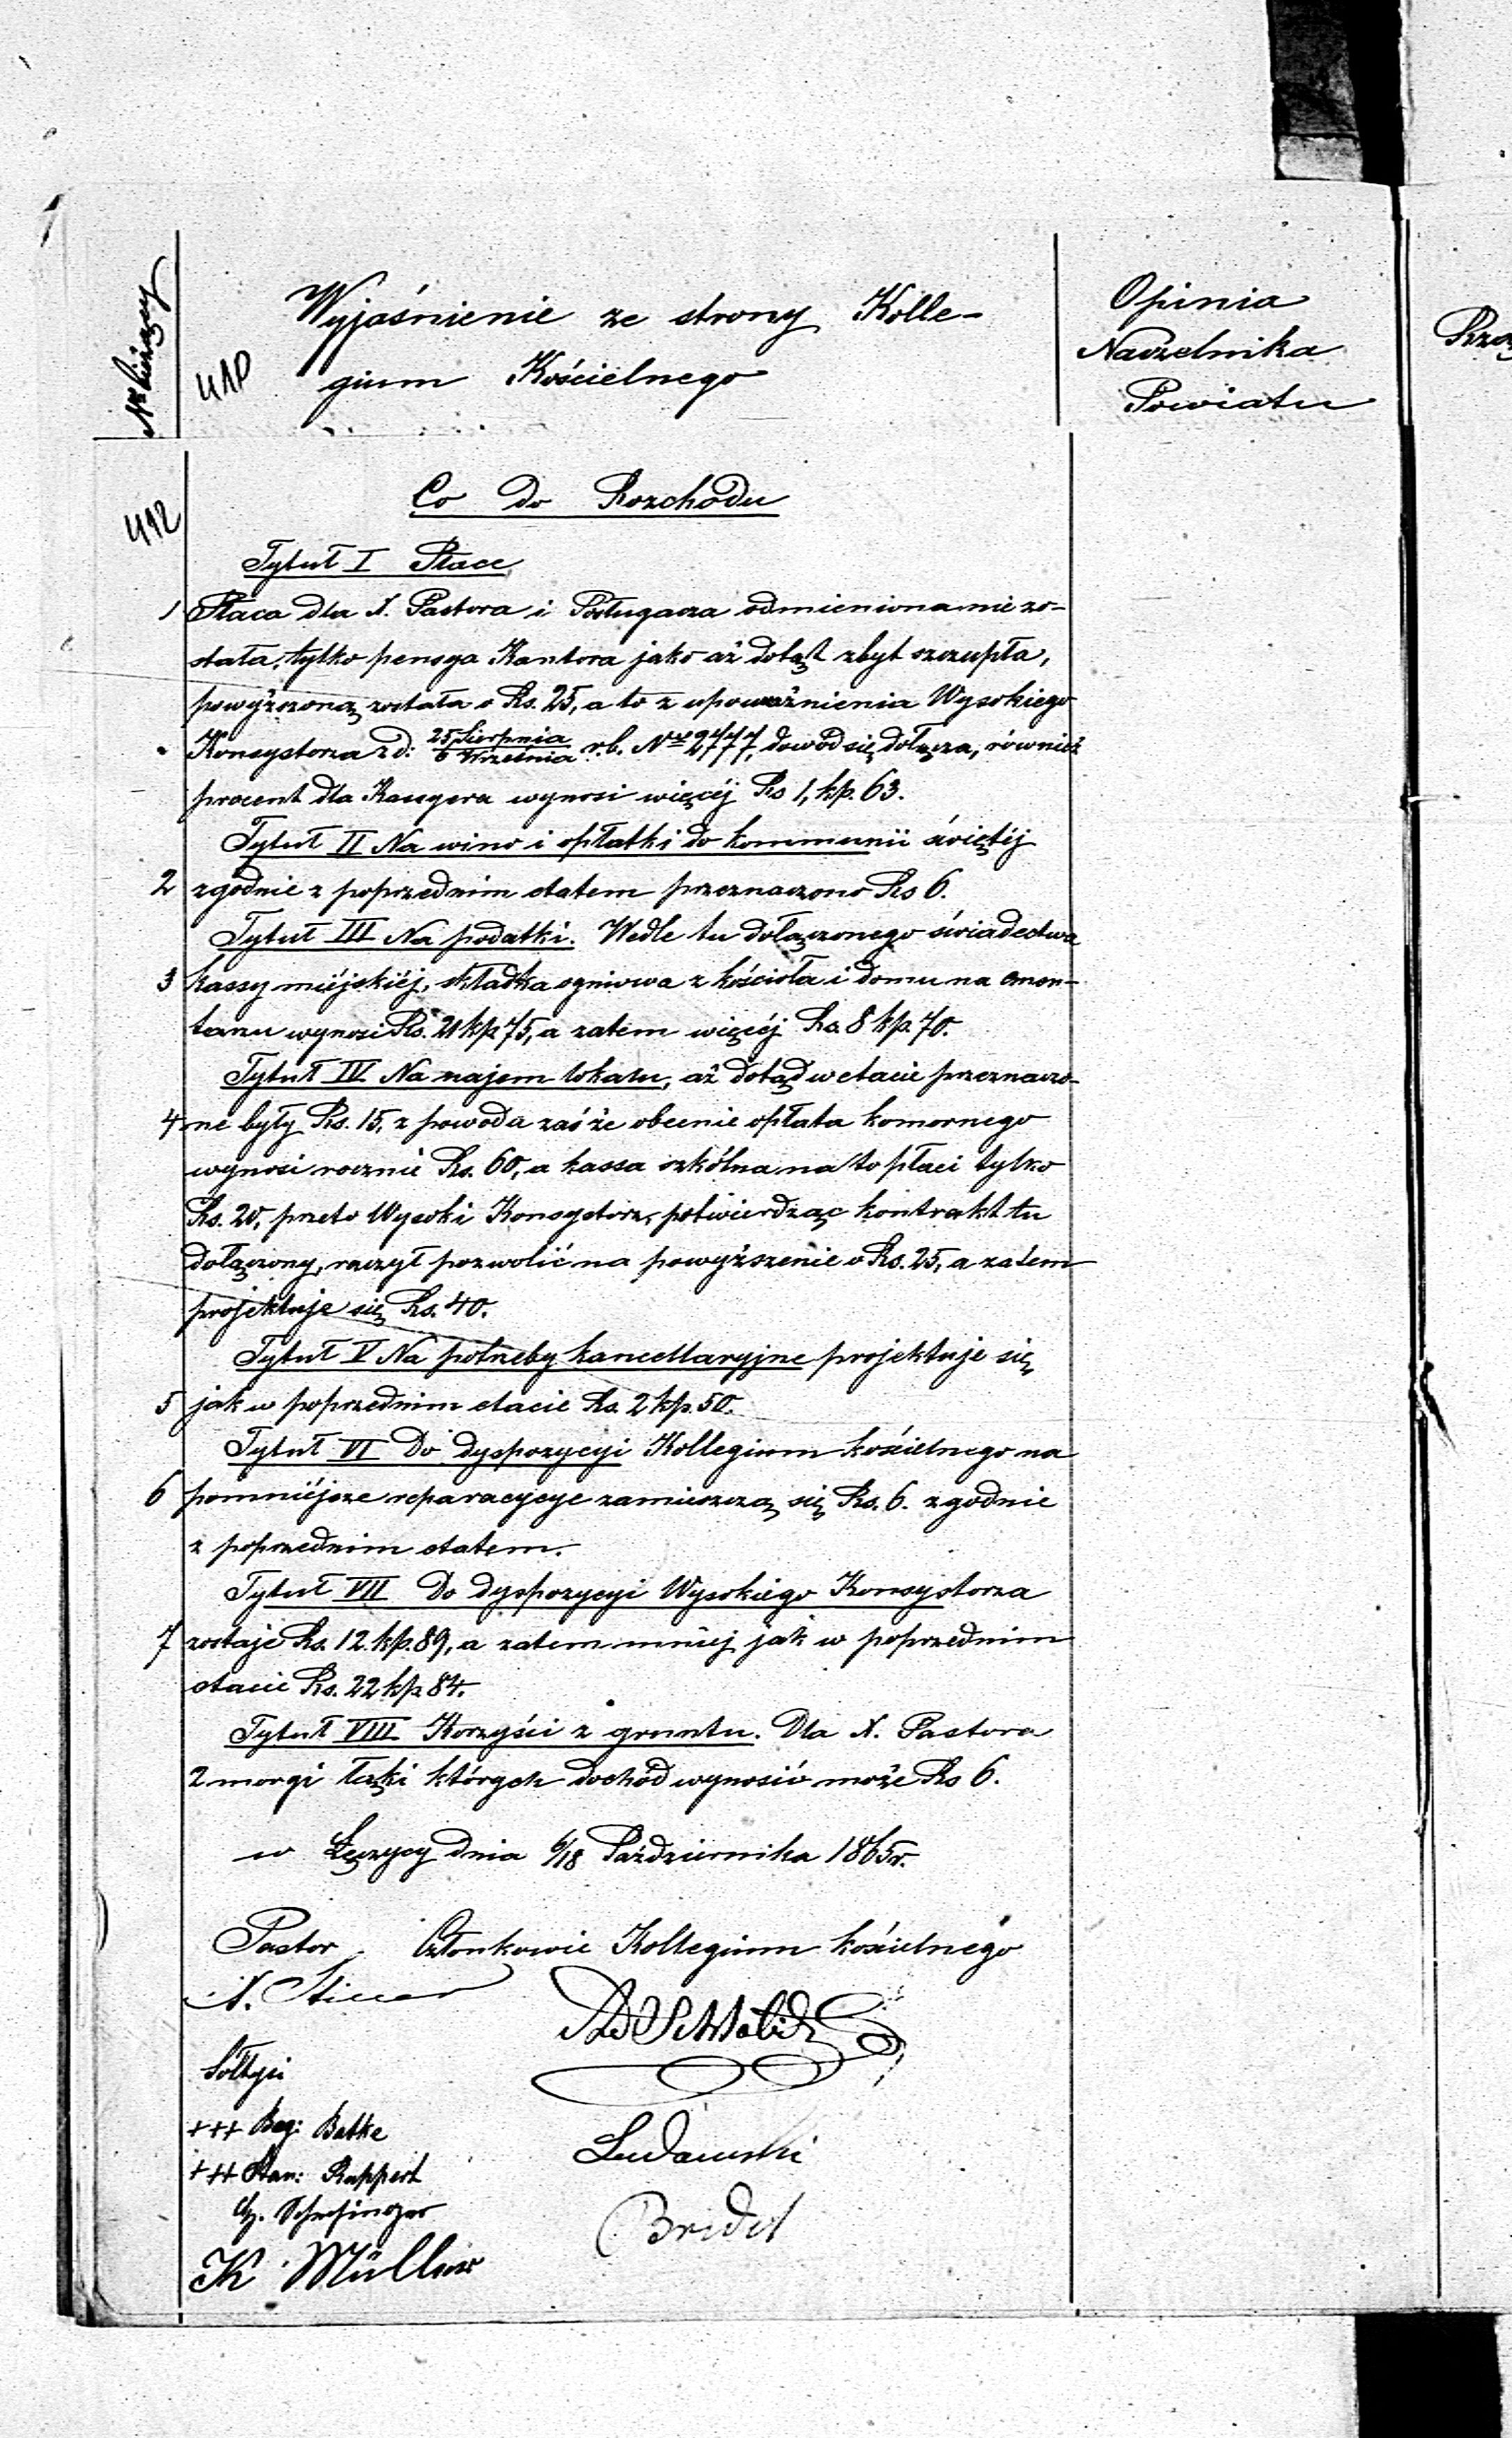 Nr bieżący
Wyjaśnienie ze strony Kolle-
gium Kościelnego
Opinia
Naczelnika
Powiatu
Co do Rozchodu
412
Tytuł I Płace
1 Płaca dla X. Pastora i Posługacza odmienioną nie zo-
stała, tylko pensya Kantora jako aż dotąd zbyt szczupła,
powyższoną została o Rs. 25, a to z upoważnienia Wysokiego
Konsystorza z d: 25 Sierpnia / 6 Września r.b. Nr 2777, dowód się dołącza, również
procent dla Kassyera wynosi więcéj Rs 1, kp. 63.
Tytuł II Na wino i opłatki do kommunii świętéj
2 zgodnie z poprzednim etatem przeznaczono Rs 6.
Tytuł III Na podatki. Wedle tu dołączonego świadectwa
3 kassy miéjskiéj, składka ogniowa z kościoła i domu na cmen-
tarzu wynosi Rs. 21 kp 75, a zatem więcéj Rs. 8 kp 70.
Tytuł IV Na najem lokalu, aż dotąd w etacie przeznaczo-
4 ne były Rs. 15, z powodu zaś że obecnie opłata komornego
wynosi rocznie Rs. 60, a kassa szkólna na to płaci tylko
Rs. 20, przeto Wysoki Konsystorz, potwierdzając kontrakt tu
dołączony, raczył pozwolić na powyższenie o Rs. 25, a zatem
projektuje się Rs. 40.
Tytuł V Na potrzeby kancellaryjne projektuje się
5 jak w poprzednim etacie Rs. 2 kp. 50.
Tytuł VI Do dyspozycyi Kollegium kościelnego na
6 pomniéjsze reparacycye zamieszcza się Rs. 6. zgodnie
z poprzednim etatem.
Tytuł VII Do dyspozycyi Wysokiego Konsystorza
7 zostaje Rs. 12. kp. 89, a zatem mniéj jak w poprzednim
etacie Rs. 22 kp 84.
Tytuł VIII Korzyści z gruntu. Dla X. Pastora
2 morgi łąki których dochód wynosić może Rs 6.
w Łęczycy dnia 6/18 Października 1865 r.
Pastor Członkowie Kollegium kościelnego
Sołtysi
+++ Bog: Batke
+++ Stan: Ruppert
K. Müller
Bridel